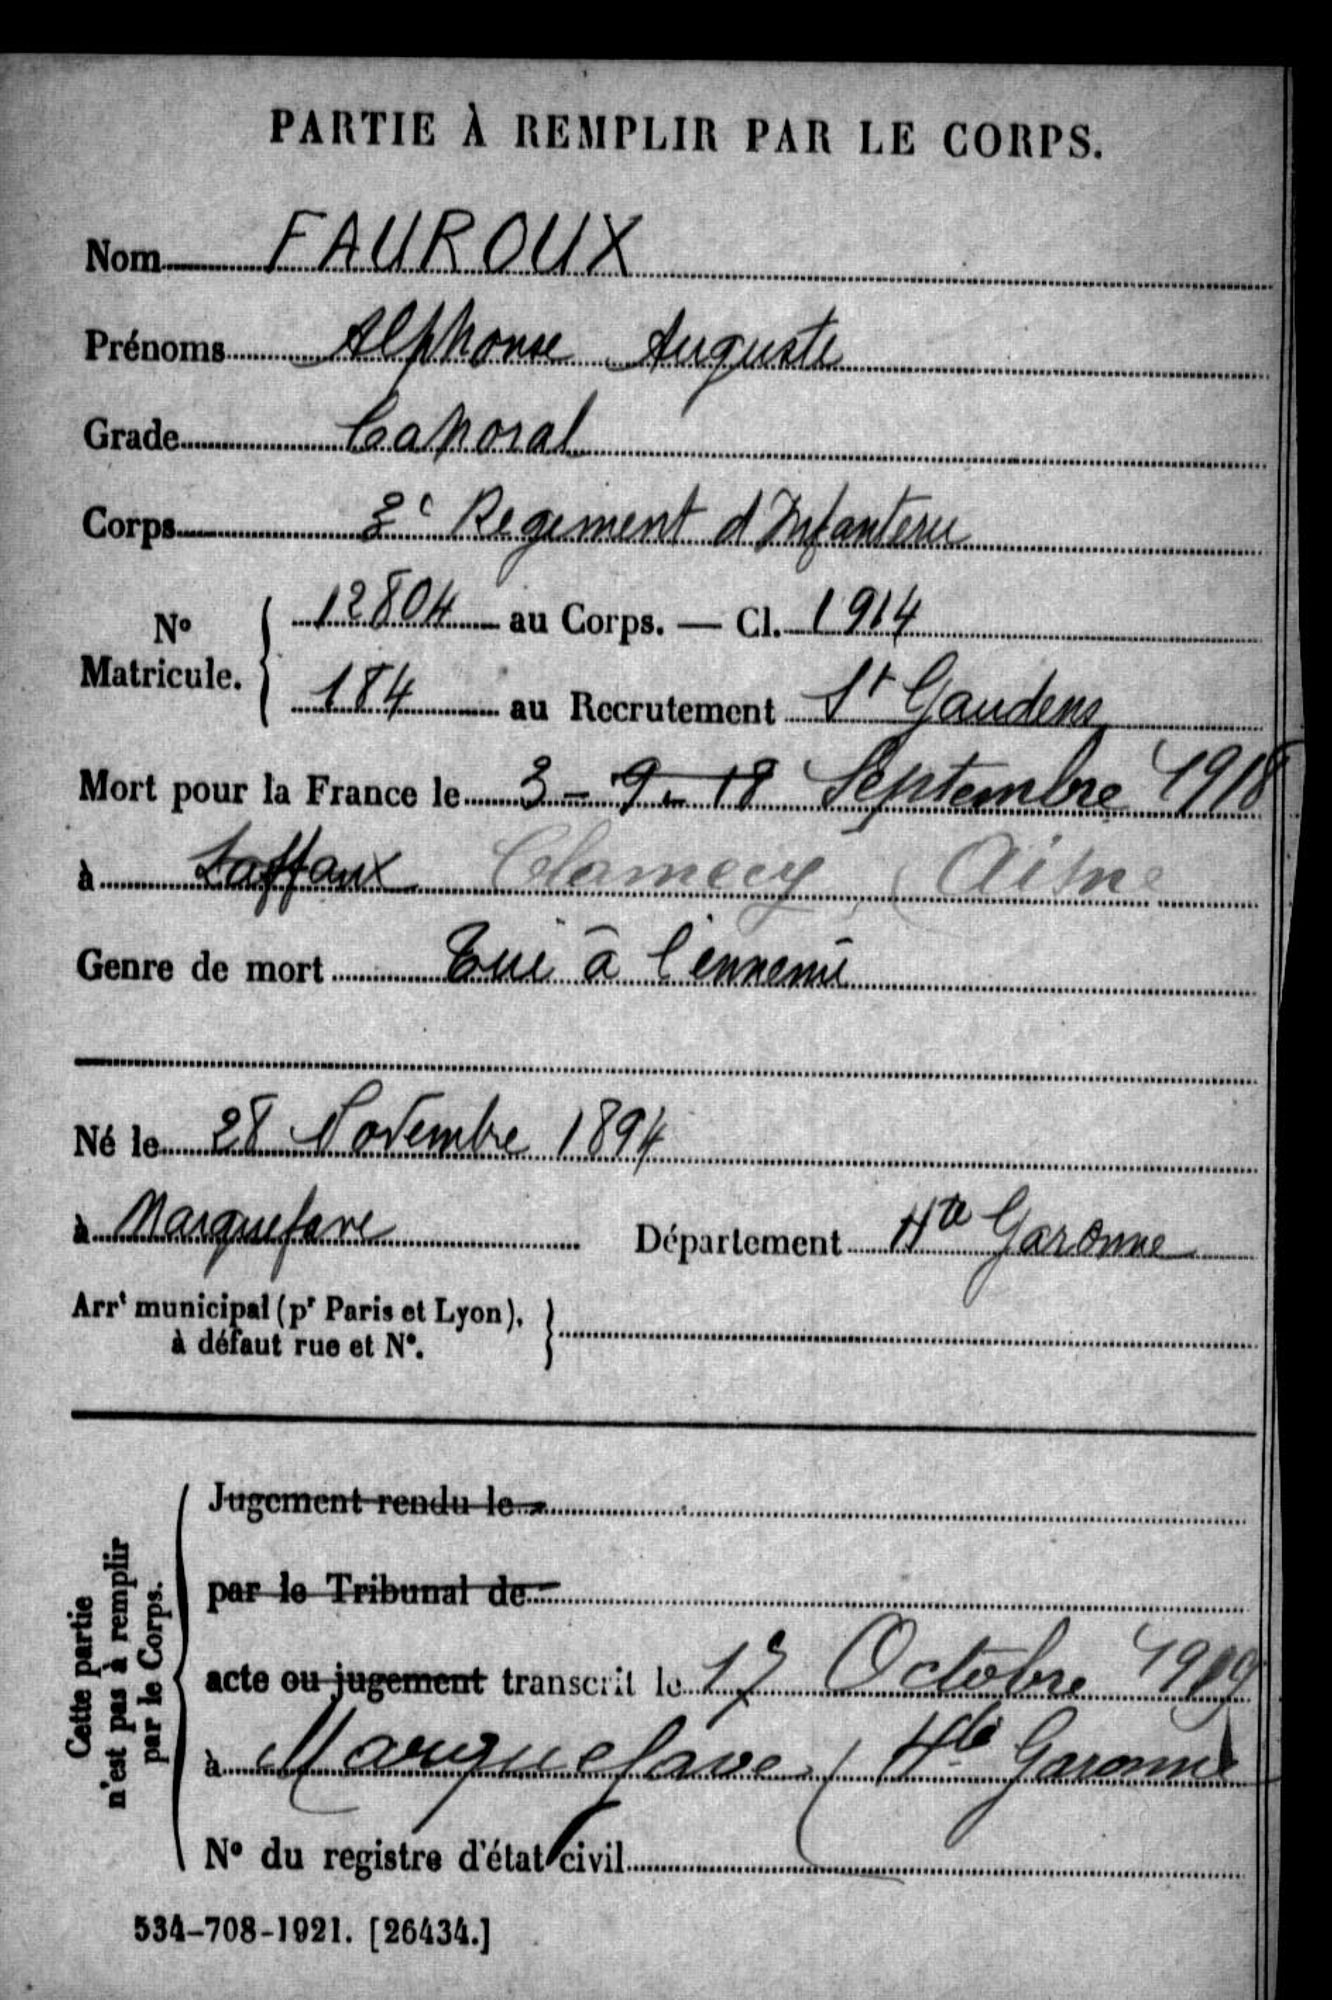 PARTIE À REMPLIR PAR LE CORPS.
Nom FAUROUX
Prénoms Alphonse Auguste
Grade Caporal
Corps 2e Regiment d'Infanterie
No Matricule. 12804 au Corps. — Cl. 1914
184 au Recrutement St Gaudens
Mort pour la France le 3 - 9 - 18 Septembre 1918
à Laffaux Clamecy (Aisne
Genre de mort Tué à l'ennemi
Né le 28 Novembre 1894
à Marquefave Département Hte Garonne
Arrt municipal (pr Paris et Lyon),
à défaut rue et No.
Cette partie
n'est pas à remplir
par le Corps.
Jugement rendu le
par le Tribunal de
acte ou jugement transcrit le 17 Octobre 1919
à Marquefave (Hte Garonne
No du registre d'état civil
534-708-1921. [26434.]